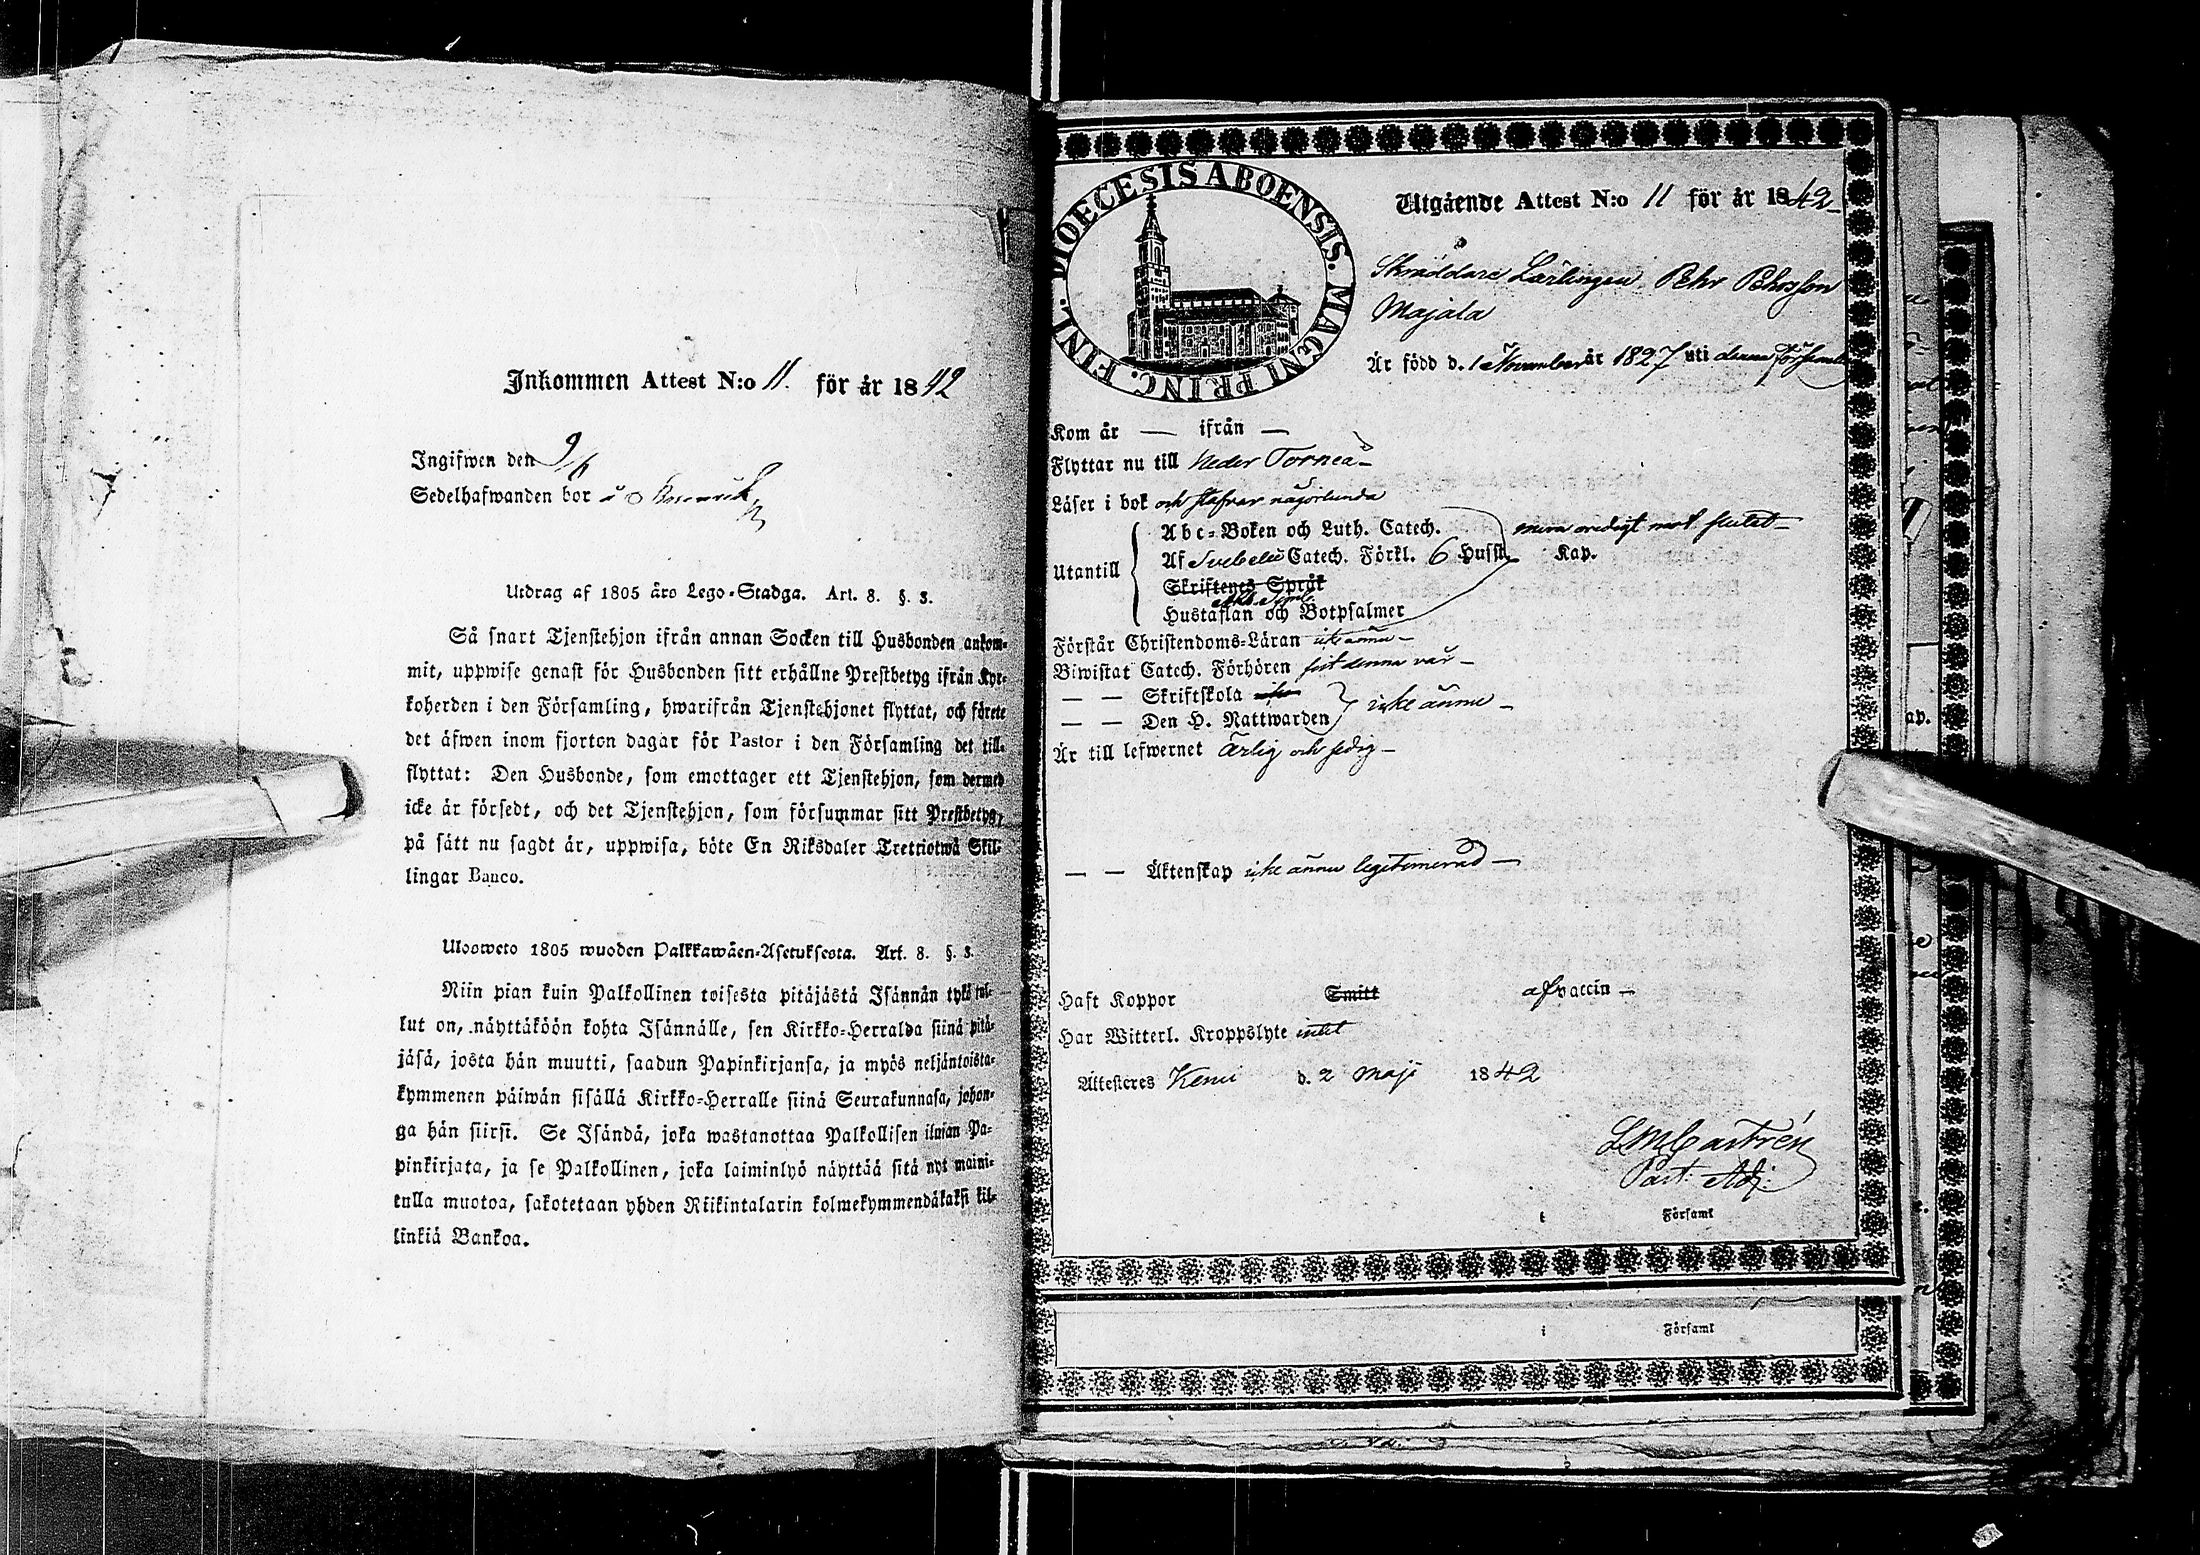 Inkommen Attest N:o 11. för år 1842
Ingifwen den 9/6
Sedelhafwanden bor
Utdrag af 1805 års Lego-Stadga. Art. 8. §. 3.
Så snart Tjenstehjon ifrån annan Socken till Husbonden ankom-
mit, uppwise genast för Husbonden sitt erhållne Prestbetyg ifrån Kyr-
koherden i den Församling, hwarifrån Tjenstehjonet flyttat, och förete
det äfwen inom fjorton dagar för Pastor i den Församling det till-
flyttat: Den Husbonde, som emottager ett Tjenstehjon, som dermed
icke är försedt, och det Tjenstehjon, som försummar sitt Prestbetyg,
på sätt nu sagdt är, uppwisa, böte En Riksdaler Tretriotwå Skil-
lingar Banco.
Ulosweto 1805 wuoden Palkkawäen-Asetuksesta. Art. 8. §. 3.
Niin pian kuin Palkollinen toisesta pitäjästä Isännän tykö tul-
lut on, näyttäköön kohta Isännälle, sen Kirkko-Herralda siinä pitä-
jäsä, josta hän muutti, saadun Papinkirjansa, ja myös neljäntoista-
kymmenen päiwän sisällä Kirkko-Herralle siinä Seurakunnasa, johon-
ga hän siirsi. Se Isändä, joka wastanottaa Palkollisen ilman Pa-
pinkirjata, ja se Palkollinen, joka laiminlyö näyttää sitä nyt maini-
tulla muotoa, sakotetaan yhden Riikintalarin kolmekymmendäkaksi kil-
linkiä Bankoa.
DIOECESIS ABOENSIS. MAGNI PRINC. FINL.
Utgående Attest N:o 11 för år 1842
Skräddare Lärlingen Pehr Pehrsson
Majala
Är född d. 1 November år 1827 uti denna Församl
Kom år — ifrån —
Flyttar nu till Neder Torneå
Läser i bok och stafvar någorlunda
Abc-Boken och Luth. Catech. mera oredigt mot slutet
Utantill Af Svebelii Catech. Förkl. 6 Hufst. Kap.
Skriftenes Språk
Athb. Symb.
Hustaflan och Botpsalmer
Förstår Christendoms-Läran icke ännu
Biwistat Catech. Förhören sist denna vår
— — Skriftskola
— — Den H. Nattwarden icke ännu
Är till lefwernet ärlig och sedig
— — Äktenskap icke ännu legitimerad
Haft Koppor Smitt af vaccin
Har Witterl. Kroppslyte intet
Attesteres Kemi d. 2 Maji 1842
LMCastrén
Past. Adj.
i Församl
i Församl